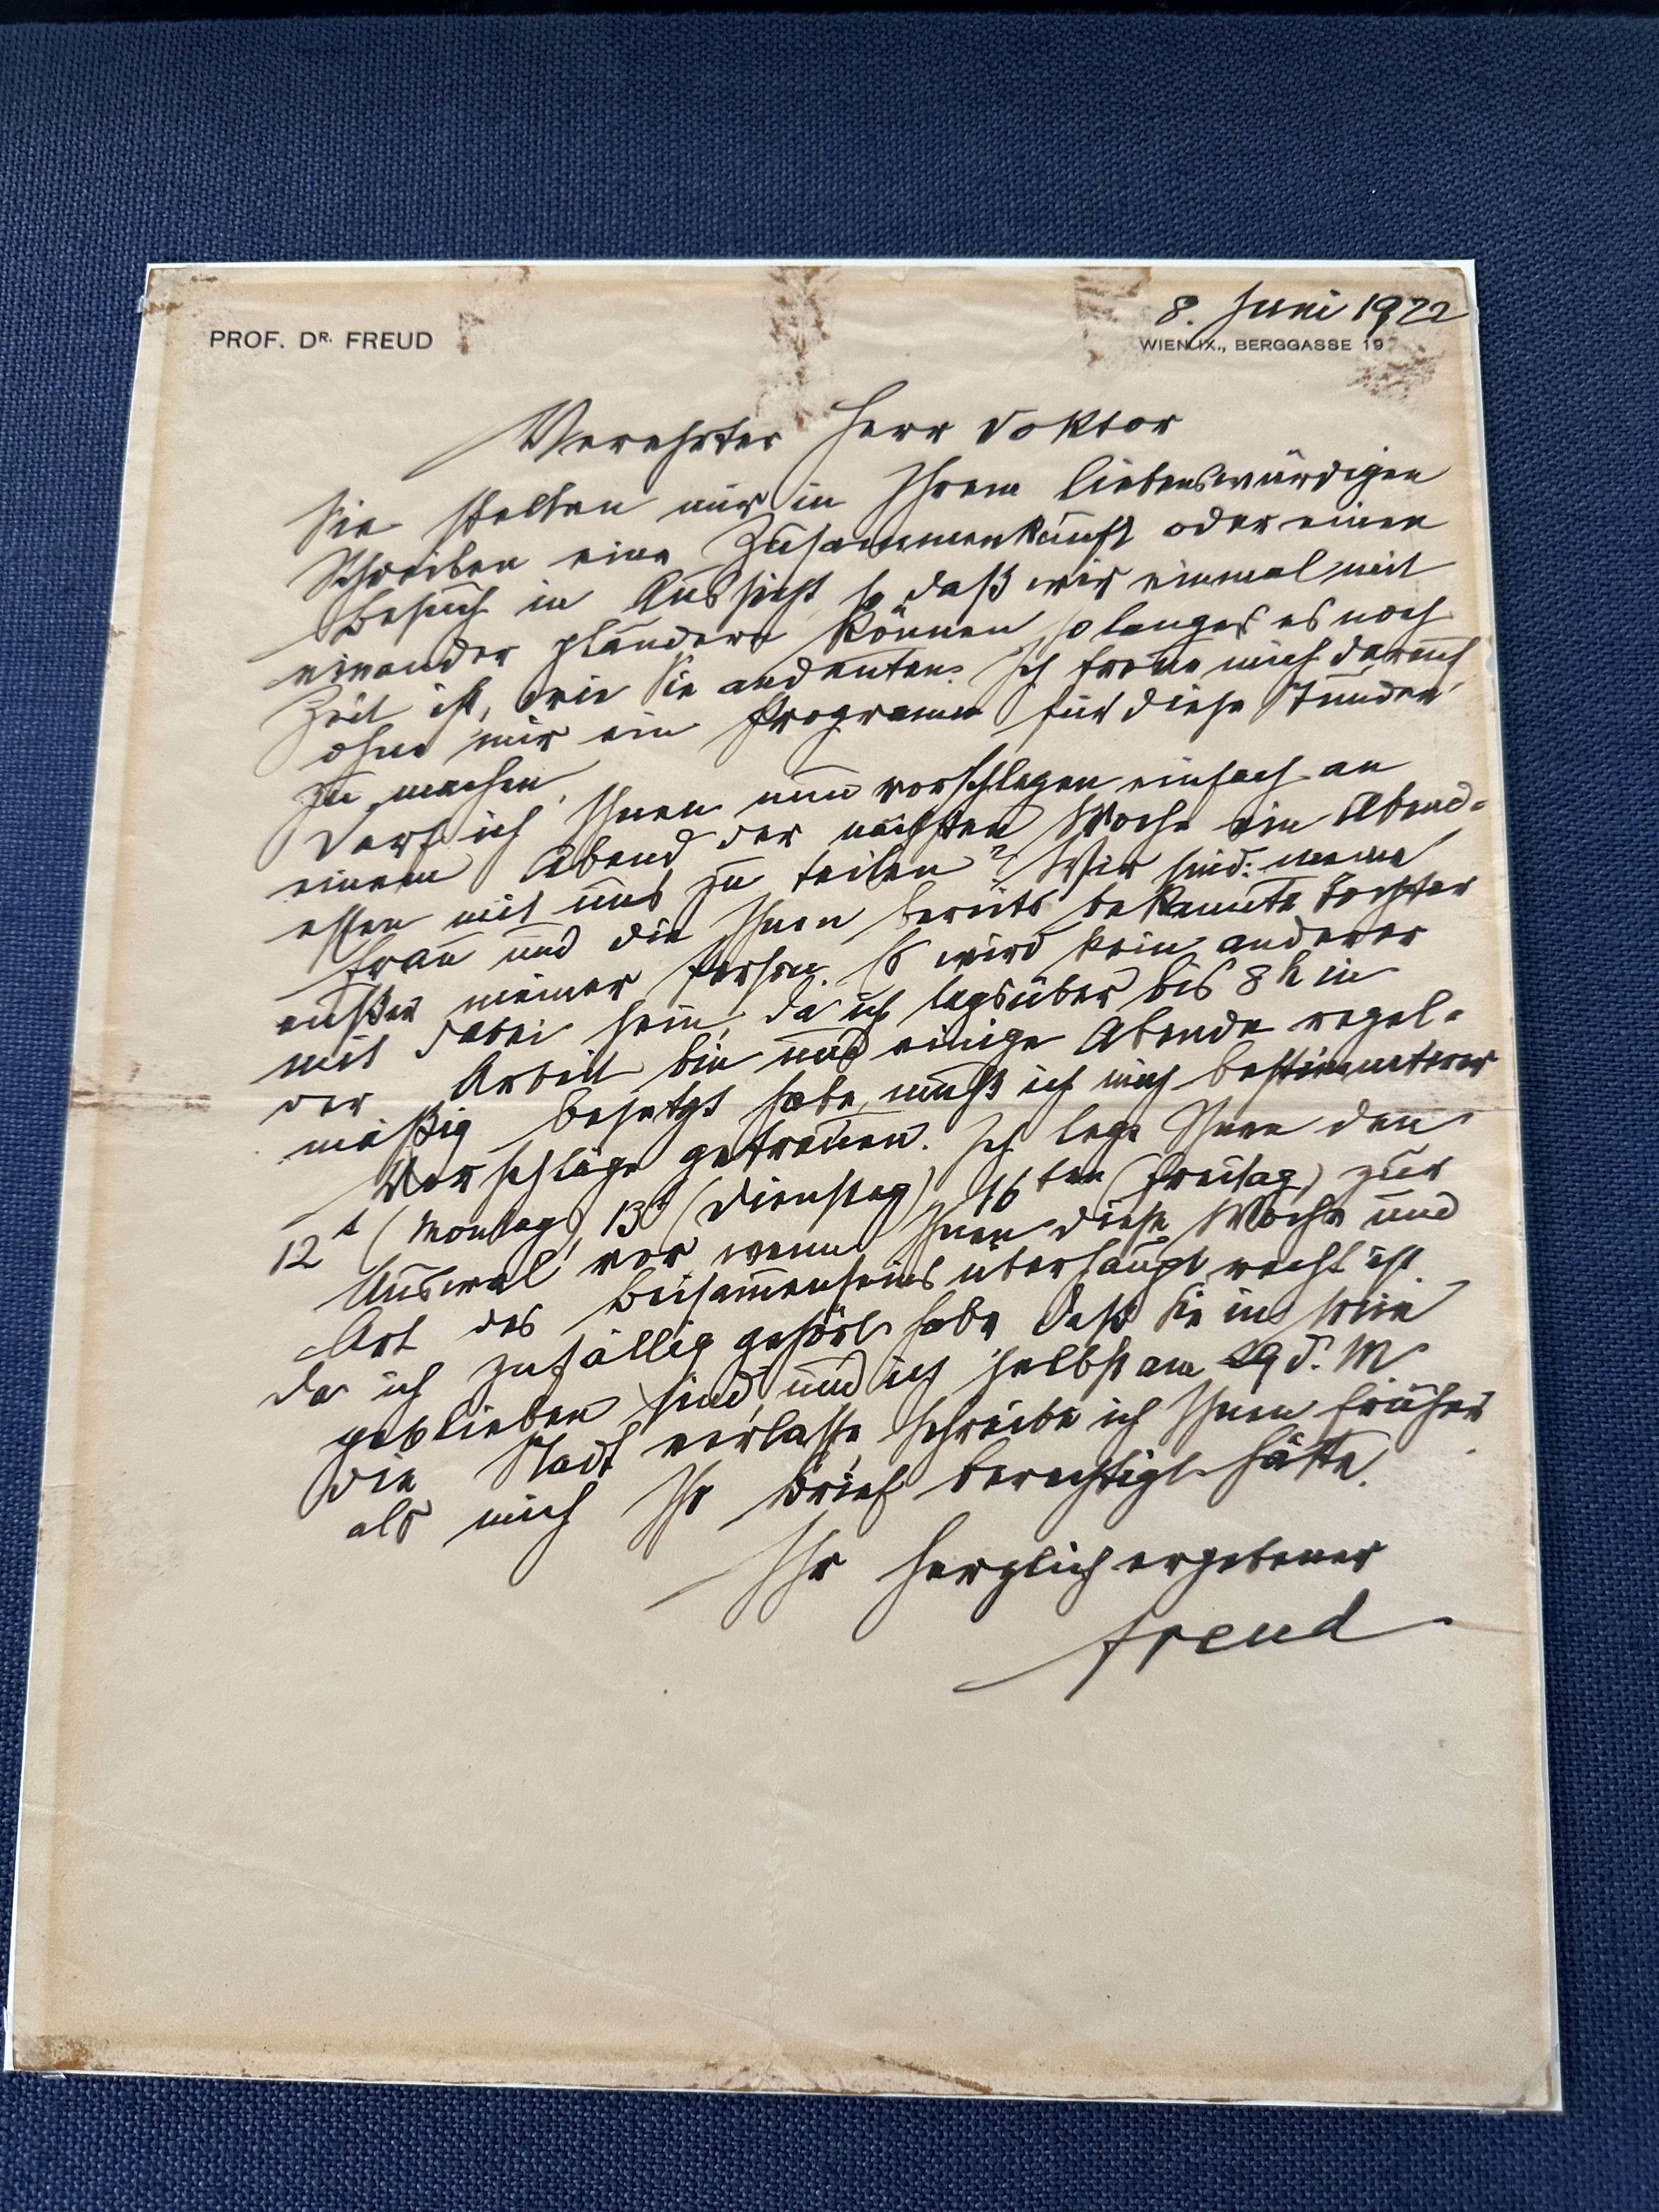 8. Juni 1922
PROF. DR. FREUD
WIEN, IX., BERGGASSE 19
Verehrter Herr Doktor
Sie stellten mir in Ihrem liebenswürdigen
Schreiben eine Zusammenkunft oder einen
Besuch in Aussicht so daß wir einmal mit
einander plaudern können, solange es noch
Zeit ist, wie Sie andeuten. Ich freue mich darauf
ohne mir ein Programm für diese Stunden
zu machen.
Darf ich Ihnen nun vorschlagen einfach an
einem Abend der nächsten Woche ein Abend-
essen mit uns zu teilen? Wir sind: meine
Frau und die Ihnen bereits bekannte Tochter
außer meiner Person. Es wird kein anderer
mit dabei sein, da ich tagsüber bis 8 h in
der Arbeit bin und einige Abende regel-
mäßig besetzt habe, muß ich mich bestimmterer
Vorschläge getrauen. Ich lege Ihnen den
12t (Montag), 13t (Dienstag), 16ten (Freitag) zur
Auswal vor, wenn Ihnen diese Woche und
Art des Beisammenseins überhaupt recht ist.
Da ich zufällig gehört habe, daß Sie in Wien
geblieben sind, und ich selbst am 29 d. M.
die Stadt verlasse, schreibe ich Ihnen früher
als mich Ihr Brief berechtigt hätte.
Ihr herzlich ergebener
Freud